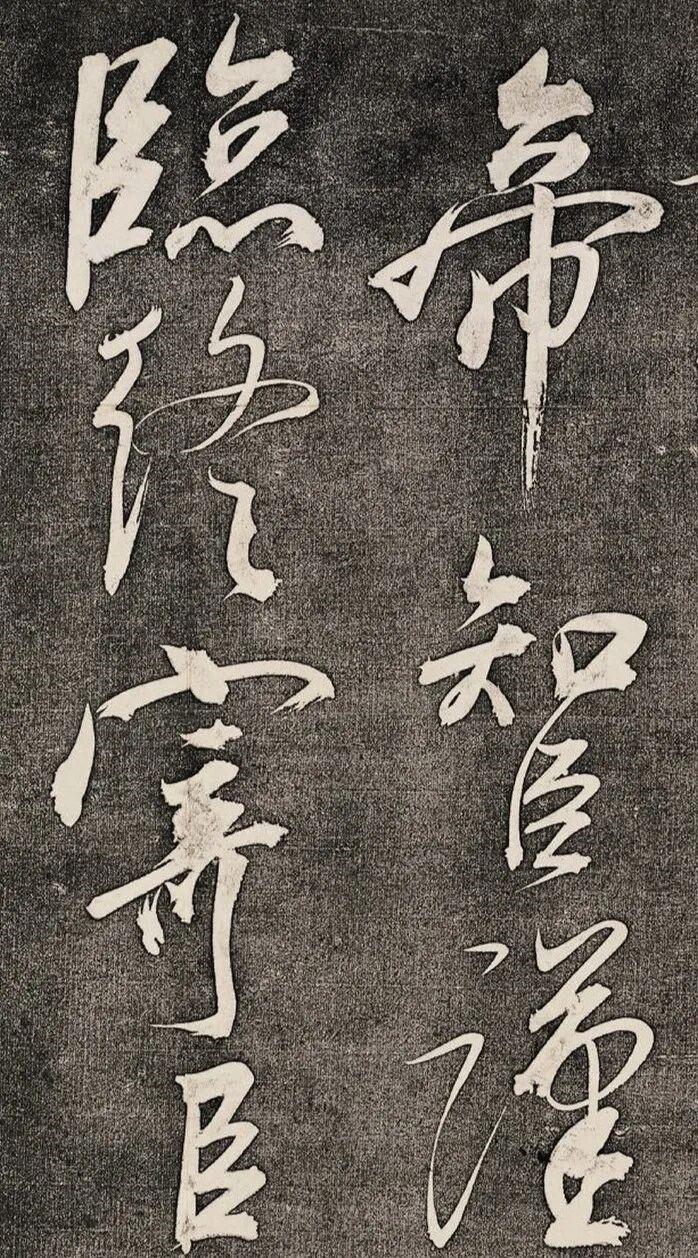 帝知臣謹
臨終寄臣